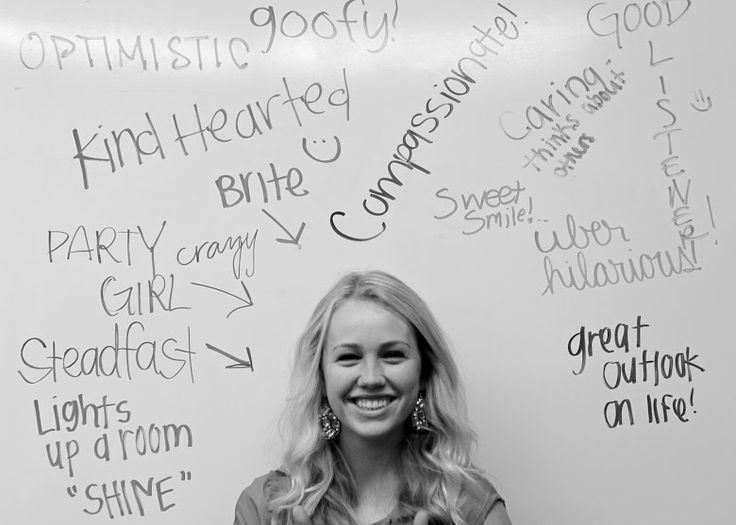 OPTIMISTIC
goofy!
Kind Hearted
Compassionate!
GOOD
LISTENER!
Caring-
thinks about
others
BRite
Sweet
Smile!..
uber
hilarious!
PARTY crazy
GIRL
Steadfast
great
outlook
on life!
Lights
up a room
"SHINE"